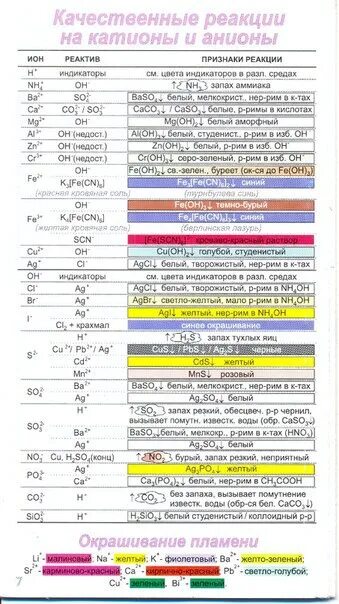 Качественные реакции
на катионы и анионы
ИОН РЕАКТИВ ПРИЗНАКИ РЕАКЦИИ
H⁺ индикаторы см. цвета индикаторов в разл. средах
NH₄⁺ OH⁻ ↑NH₃ запах аммиака
Ba²⁺ SO₄²⁻ BaSO₄↓ белый, мелкокрист., нер-рим в к-тах
Ca²⁺ CO₃²⁻ / SO₃²⁻ CaCO₃↓ / CaSO₃↓ белые, р-римы в кислотах
Mg²⁺ OH⁻ Mg(OH)₂↓ белый аморфный
Al³⁺ OH⁻(недост.) Al(OH)₃↓ белый, студенист., р-рим в изб. OH⁻
Zn²⁺ OH⁻(недост.) Zn(OH)₂↓ белый, р-рим в изб. OH⁻
Cr³⁺ OH⁻(недост.) Cr(OH)₃↓ серо-зеленый, р-рим в изб. OH⁻
Fe²⁺ OH⁻ Fe(OH)₂↓ св.-зелен., буреет (ок-ся до Fe(OH)₃)
K₃[Fe(CN)₆] Fe₃[Fe(CN)₆]₂↓ синий
(красная кровяная соль) (турнбулева синь)
Fe³⁺ OH⁻ Fe(OH)₃↓ темно-бурый
K₄[Fe(CN)₆] Fe₄[Fe(CN)₆]₃↓ синий
(желтая кровяная соль) (берлинская лазурь)
SCN⁻ [Fe(SCN)₆]³⁻ кроваво-красный раствор
Cu²⁺ OH⁻ Cu(OH)₂↓ голубой, студенистый
Ag⁺ Cl⁻ AgCl↓ белый, творожистый, нер-рим в к-тах
OH⁻ индикаторы см. цвета индикаторов в разл. средах
Cl⁻ Ag⁺ AgCl↓ белый, творожистый, р-рим в NH₄OH
Br⁻ Ag⁺ AgBr↓ светло-желтый, мало р-рим в NH₄OH
I⁻ Ag⁺ AgI↓ желтый, нер-рим в NH₄OH
Cl₂ + крахмал синее окрашивание
S²⁻ H⁺ ↑H₂S запах тухлых яиц
Cu²⁺/ Pb²⁺/ Ag⁺ CuS↓ / PbS↓ / Ag₂S↓ черные
Cd²⁺ CdS↓ желтый
Mn²⁺ MnS↓ розовый
SO₄²⁻ Ba²⁺ BaSO₄↓ белый, мелкокрист., нер-рим в к-тах
Ag⁺ Ag₂SO₄↓ белый
SO₃²⁻ H⁺ ↑SO₂ запах резкий, обесцвеч. р-р чернил,
вызывает помутн. известк. воды (обр. CaSO₃↓)
Ba²⁺ BaSO₃↓ белый, мелкокр., р-рим в к-тах (HNO₃)
Ag⁺ Ag₂SO₃↓ белый
NO₃⁻ Cu, H₂SO₄(конц) ↑NO₂ бурый, запах резкий, неприятный
PO₄³⁻ Ag⁺ Ag₃PO₄↓ желтый
Ca²⁺ Ca₃(PO₄)₂↓ белый, нер-рим в CH₃COOH
CO₃²⁻ H⁺ ↑CO₂ без запаха, вызывает помутнение
известк. воды (обр-ся бел. CaCO₃↓)
SiO₃²⁻ H⁺ H₂SiO₃↓ белый студенистый / коллоидный р-р
Окрашивание пламени
Li⁺- малиновый; Na⁺- желтый; K⁺- фиолетовый; Ba²⁺- желто-зеленый;
Sr²⁺- карминово-красный; Ca²⁺- кирпично-красный; Pb²⁺-светло-голубой;
Cu²⁺- зеленый; Bi³⁺- зеленый.
7